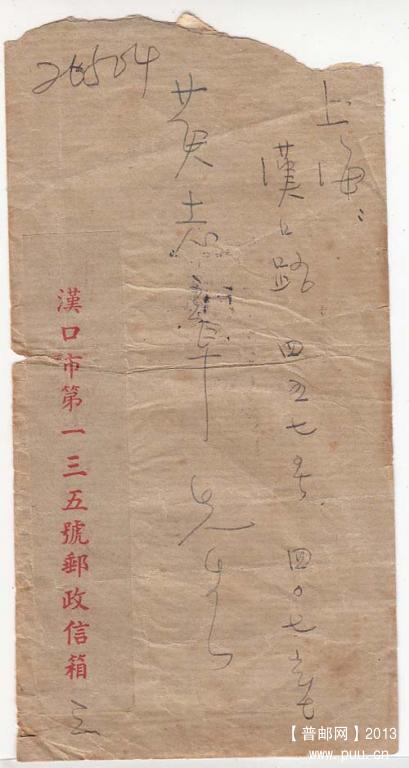 上海
漢口路 四五七号 四〇七室
黄志 先生
26504
漢口市第一三五號郵政信箱
【普邮网】2013
www.puu.cn